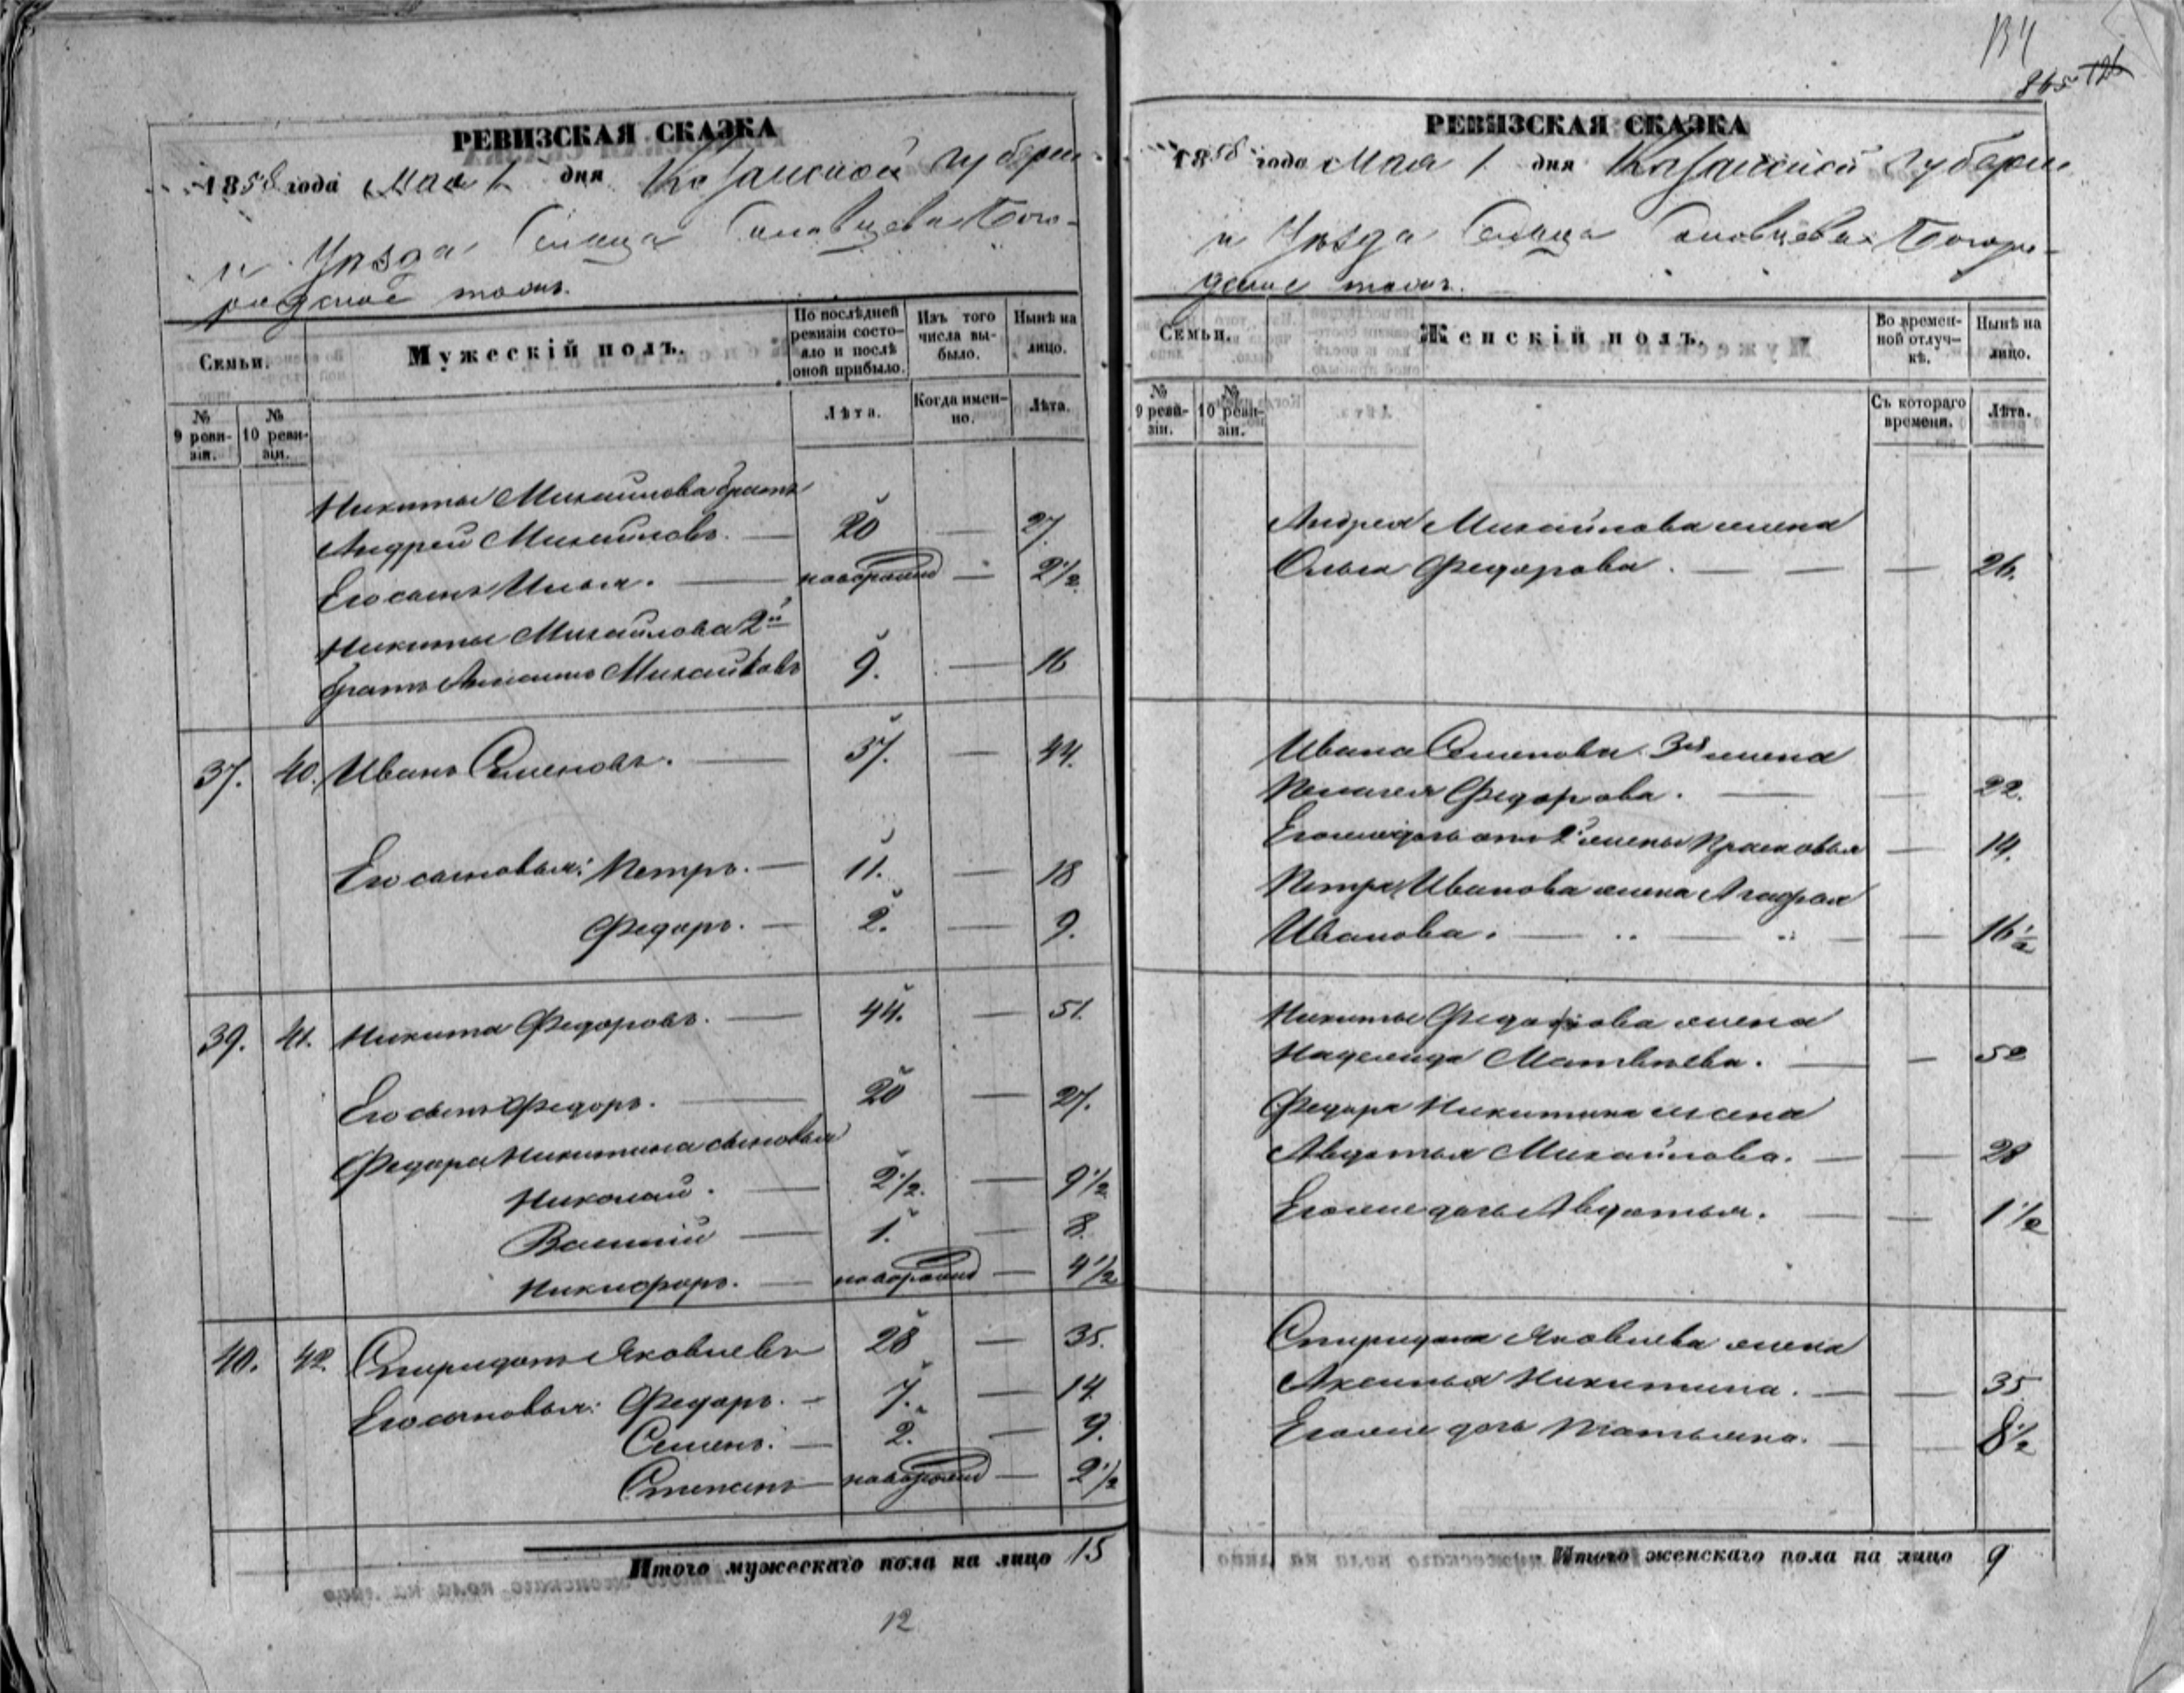 РЕВИЗСКАЯ СКАЗКА
1858 года Мая 1 дня Казанской губерніи
и Уѣзда Сельца
Семьи.
Мужескій полъ.
По послѣдней ревизіи состояло и послѣ оной прибыло.
Изъ того числа выбыло.
Нынѣ на лицо.
№ 9 ревизіи.
№ 10 ревизіи.
Лѣта.
Когда именно.
Лѣта.
Никиты Михайлова братъ
Андрей Михайловъ. — 20 — 27.
Его сынъ Илья. — новорожд — 2 1/2
Никиты Михайлова 2й
братъ Михайловъ 9. — 16
37. 40. Иванъ Семеновъ. — 37. — 44.
Его сыновья: Петръ. — 11. — 18
Федоръ. — 2. — 9.
39. 41. Никита Федоровъ. — 44. — 51.
Его сынъ Федоръ. — 20 — 27.
Федора Никитина сыновья
Николай. — 2 1/2. — 9 1/2
Василій — 1. — 8.
Никифоръ. — новорожд — 4 1/2
40. 42. Спиридонъ Яковлевъ 28 — 35.
Его сыновья: Федоръ. — 7. — 14
Семенъ. — 2. — 9.
Степанъ — новорожд — 2 1/2
Итого мужескаго пола на лицо 15
12
134
865
РЕВИЗСКАЯ СКАЗКА
1858 года Мая 1 дня Казанской губерніи
и Уѣзда Сельца
Семьи.
Женскій полъ.
Во временной отлучкѣ.
Нынѣ на лицо.
№ 9 ревизіи.
№ 10 ревизіи.
Съ котораго времени.
Лѣта.
Андрея Михайлова жена
Ольга Федорова. — — — 26.
Ивана Семенова 3я жена
Пелагея Федорова. — — 22.
Его же дочь отъ 2й жены Прасковья — 14.
Петра Иванова жена Агафья
Иванова. — — — 16 1/2
Никиты Федорова жена
Надежда Матвѣева. — — 52
Федора Никитина жена
Авдотья Михайлова. — — 28
Его же дочь Авдотья. — — 1 1/2
Спиридона Яковлева жена
Аксинья Никитина. — — 35
Его же дочь Татьяна. — — 8 1/2
Итого женскаго пола на лицо 9